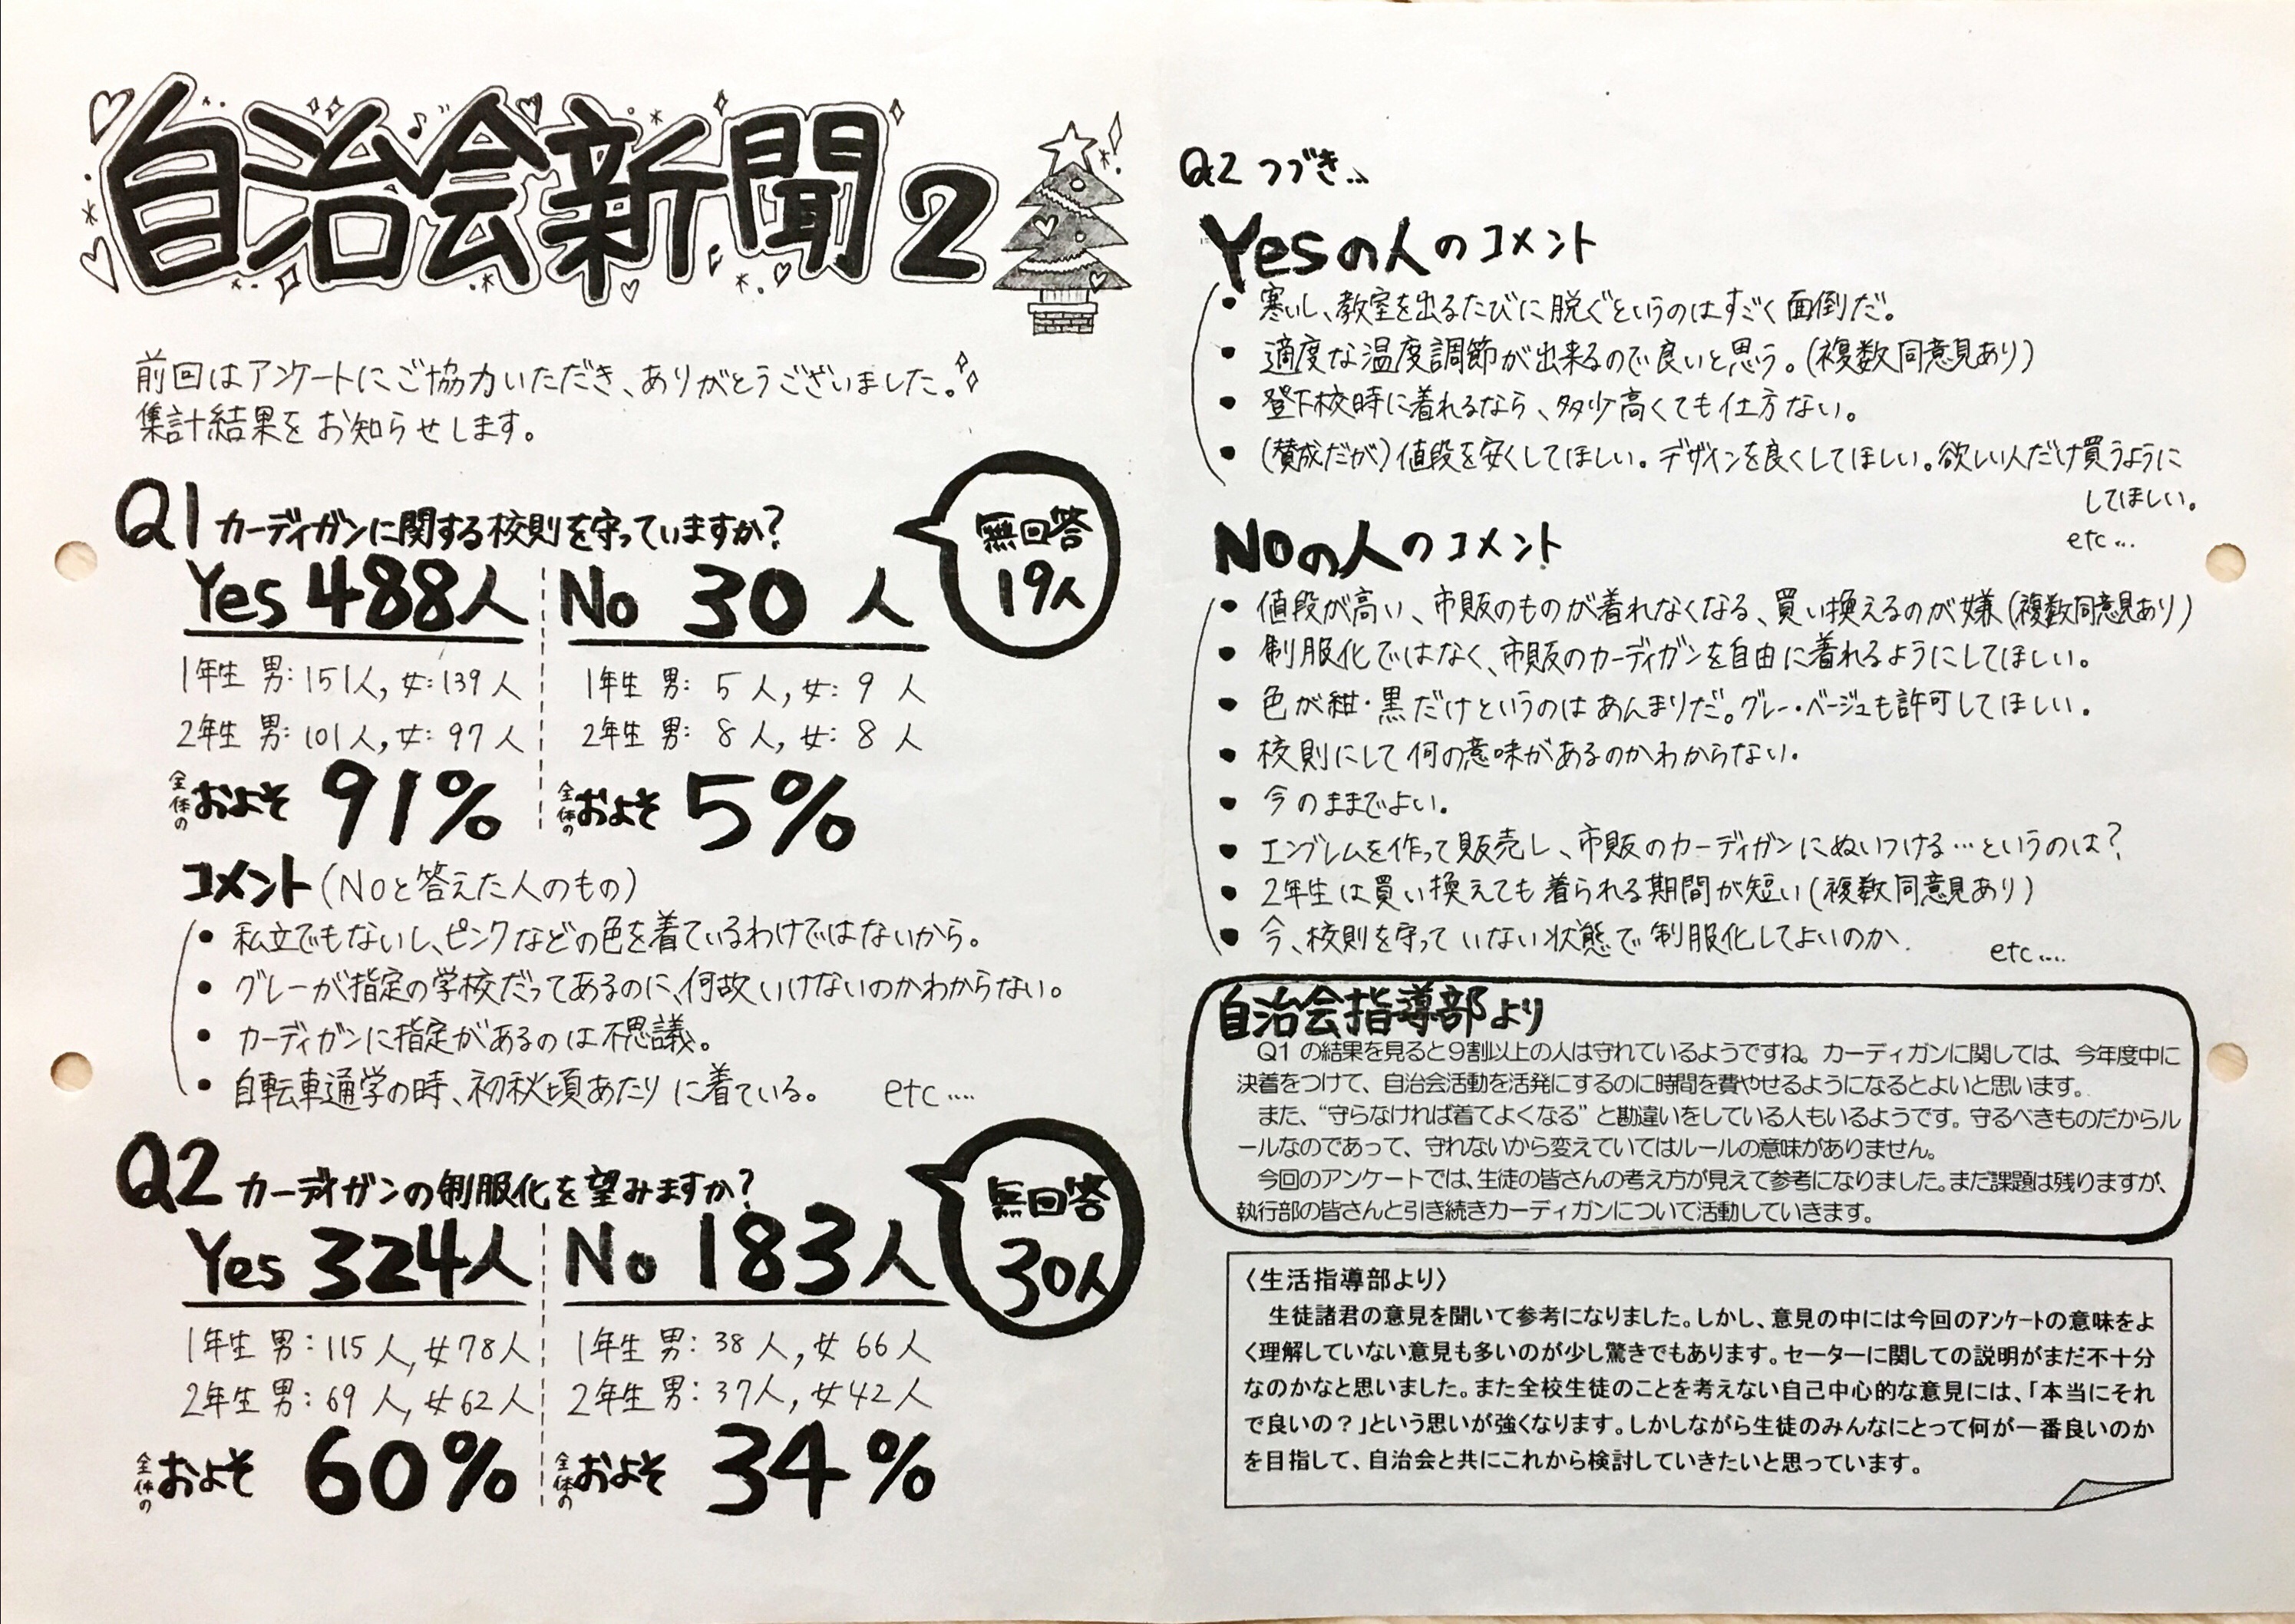 自治会新聞2
前回はアンケートにご協力いただき、ありがとうございました。
集計結果をお知らせします。
Q1 カーディガンに関する校則を守っていますか?
無回答
19人
Yes 488人
No 30人
1年生 男:151人,女:139人
1年生 男: 5人,女: 9人
2年生 男:101人,女: 97人
2年生 男: 8人,女: 8人
全体の およそ 91%
全体の およそ 5%
コメント(Noと答えた人のもの)
• 私立でもないし、ピンクなどの色を着ているわけではないから。
• グレーが指定の学校だってあるのに、何故いけないのかわからない。
• カーディガンに指定があるのは不思議。
• 自転車通学の時、初秋頃あたりに着ている。 etc....
Q2 カーディガンの制服化を望みますか?
無回答
30人
Yes 324人
No 183人
1年生 男:115人,女78人
1年生 男:38人,女66人
2年生 男:69人,女62人
2年生 男:37人,女42人
全体の およそ 60%
全体の およそ 34%
Q2 つづき...
Yesの人のコメント
• 寒いし、教室を出るたびに脱ぐというのはすごく面倒だ。
• 適度な温度調節が出来るので良いと思う。(複数同意見あり)
• 登下校時に着れるなら、多少高くても仕方ない。
• (賛成だが)値段を安くしてほしい。デザインを良くしてほしい。欲しい人だけ買うように
してほしい。
etc...
Noの人のコメント
• 値段が高い、市販のものが着れなくなる、買い換えるのが嫌(複数同意見あり)
• 制服化ではなく、市販のカーディガンを自由に着れるようにしてほしい。
• 色が紺・黒だけというのはあんまりだ。グレー・ベージュも許可してほしい。
• 校則にして何の意味があるのかわからない。
• 今のままでよい。
• エンブレムを作って販売し、市販のカーディガンにぬいつける…というのは?
• 2年生は買い換えても着られる期間が短い(複数同意見あり)
• 今、校則を守っていない状態で制服化してよいのか.
etc....
自治会指導部より
Q1の結果を見ると9割以上の人は守れているようですね。カーディガンに関しては、今年度中に
決着をつけて、自治会活動を活発にするのに時間を費やせるようになるとよいと思います。
また、“守らなければ着てよくなる”と勘違いをしている人もいるようです。守るべきものだからル
ールなのであって、守れないから変えていてはルールの意味がありません。
今回のアンケートでは、生徒の皆さんの考え方が見えて参考になりました。まだ課題は残りますが、
執行部の皆さんと引き続きカーディガンについて活動していきます。
〈生活指導部より〉
生徒諸君の意見を聞いて参考になりました。しかし、意見の中には今回のアンケートの意味をよ
く理解していない意見も多いのが少し驚きでもあります。セーターに関しての説明がまだ不十分
なのかなと思いました。また全校生徒のことを考えない自己中心的な意見には、「本当にそれ
で良いの?」という思いが強くなります。しかしながら生徒のみんなにとって何が一番良いのか
を目指して、自治会と共にこれから検討していきたいと思っています。